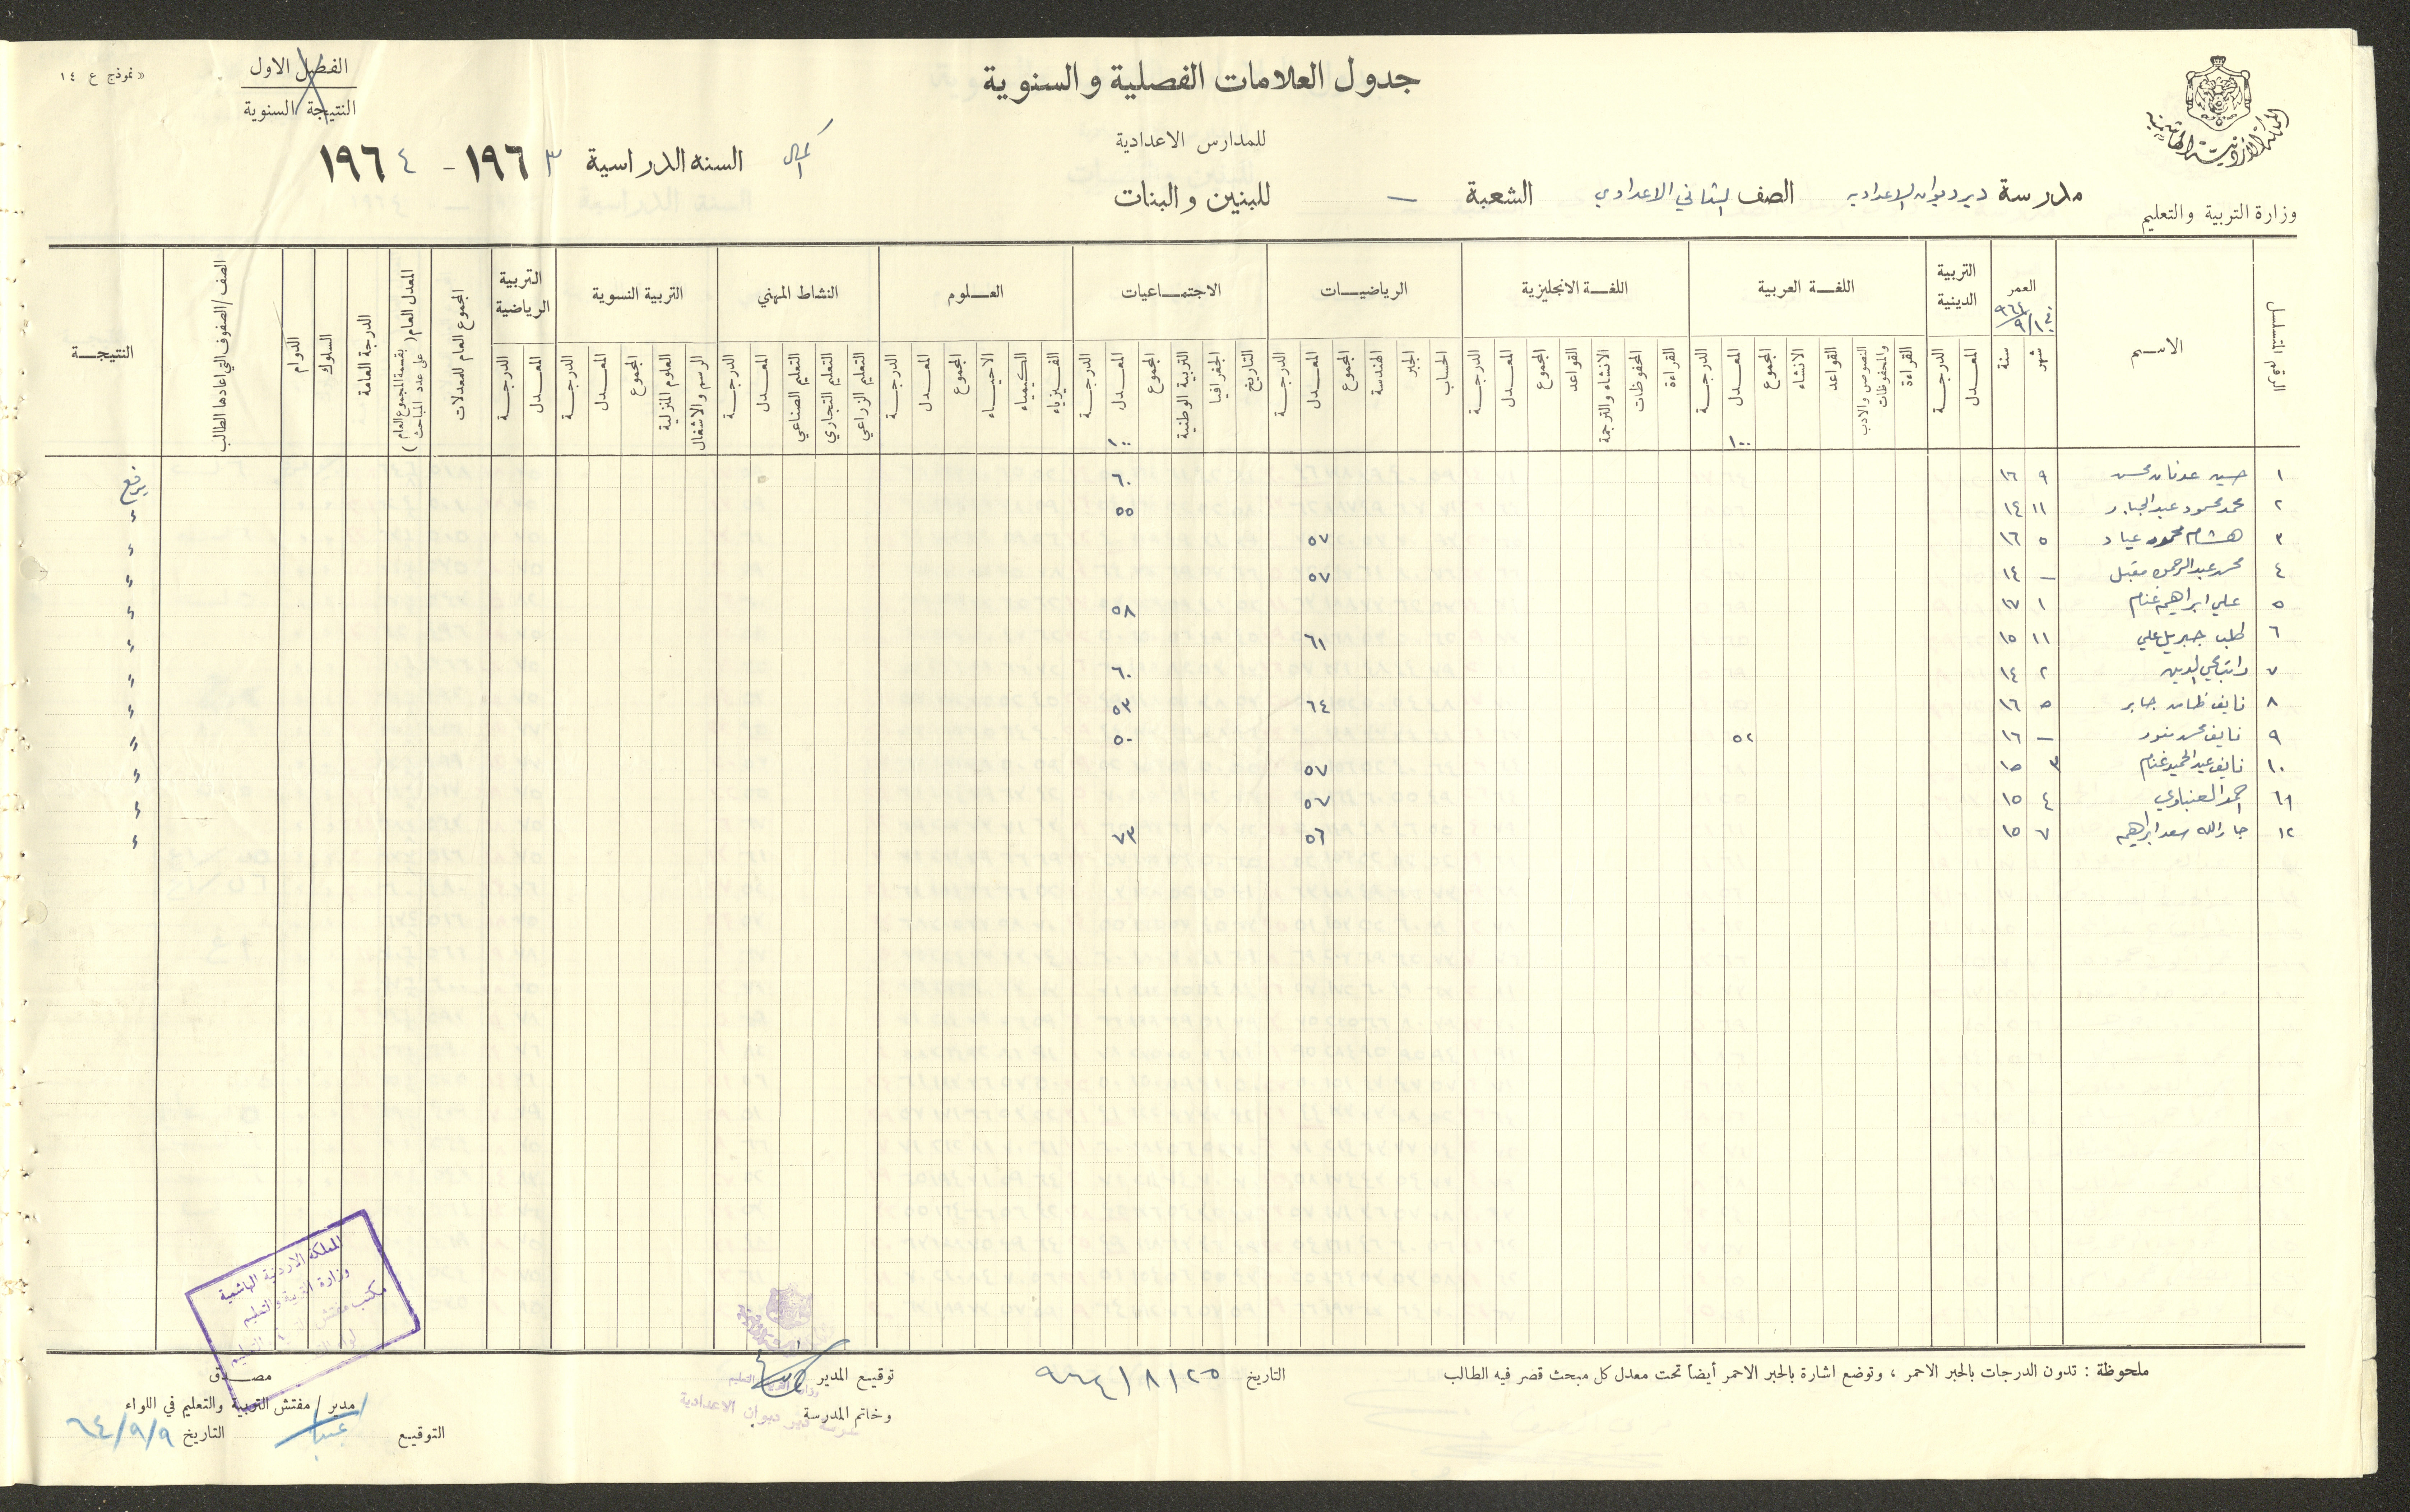 جدول العلامات الفصلية والسنوية
للمدارس الاعدادية
للبنين والبنات
المملكة الأردنية الهاشمية
وزارة التربية والتعليم
مدرسة دير ديوان الاعدادية الصف الثاني الاعدادي الشعبة —
اكمال
السنة الدراسية ١٩٦٣ - ١٩٦٤
الفصل الاول
النتيجة السنوية
« نموذج ع ١٤
الاســم
العمر
سنة
شهر
التربية الدينية
المعدل
الدرجة
اللغــة العربية
القراءة
النصوص والادب والمحفوظات
القواعد
الانشاء
المجموع
المعدل
الدرجة
١٠٠
اللغــة الانجليزية
القراءة
المحفوظات
الانشاء والترجمة
القواعد
المجموع
المعدل
الدرجة
الرياضيــات
الحساب
الجبر
الهندسة
المجموع
المعدل
الدرجة
الاجتمــاعيات
التاريخ
الجغرافيا
التربية الوطنية
المجموع
المعدل
الدرجة
١٠٠
العــلوم
الفيزياء
الكيمياء
الاحياء
المجموع
المعدل
الدرجة
النشاط المهني
التعليم الزراعي
التعليم التجاري
التعليم الصناعي
المعدل
الدرجة
التربية النسوية
الرسم والاشغال
العلوم المنزلية
المجموع
المعدل
الدرجة
التربية الرياضية
المعدل
الدرجة
المجموع العام للمعدلات
المعدل العام (بقسمة المجموع العام على عدد المباحث)
الدرجة العامة
السلوك
الدوام
الصف/الصفوف التي اعادها الطالب
النتيجــة
١ حسين عدنان محسن ٩ ١٦ ٦٠ يرفع
٢ محمد محمود عبدالجابر ١١ ١٤ ٥٥ ءِ
٣ هشام محمود عياد ٥ ١٦ ٥٧ ءِ
٤ محمد عبدالرحمن مقبل — ١٤ ٥٧ ءِ
٥ علي ابراهيم غنام ١ ١٧ ٥٨ ءِ
٦ طلب جبريل علي ١١ ١٥ ٦١ ءِ
٧ راتب محي الدين ٢ ١٤ ٦٠ ءِ
٨ نايف جابر ٥ ١٦ ٦٤ ٥٣ ءِ
٩ نايف محمد منور — ١٦ ٥٢ ٥٠ ءِ
١٠ نايف عبدالحميد غنام ٣ ١٥ ٥٧ ءِ
١١ احمد العنباوي ٤ ١٥ ٥٧ ءِ
١٢ جارالله سعد ابراهيم ٧ ١٥ ٥٦ ٧٣ ءِ
ملحوظة : تدون الدرجات بالحبر الاحمر ، وتوضع اشارة بالحبر الاحمر أيضاً تحت معدل كل مبحث قصر فيه الطالب
التاريخ ٢٥/٨/٩٦٤
توقيع المدير
وخاتم المدرسة
مدرسة دير ديوان الاعدادية
المملكة الاردنية الهاشمية
وزارة التربية والتعليم
مكتب مفتش التربية والتعليم
مصــدق
مدير / مفتش التربية والتعليم في اللواء
التوقيع
التاريخ ٩/٩/٦٤